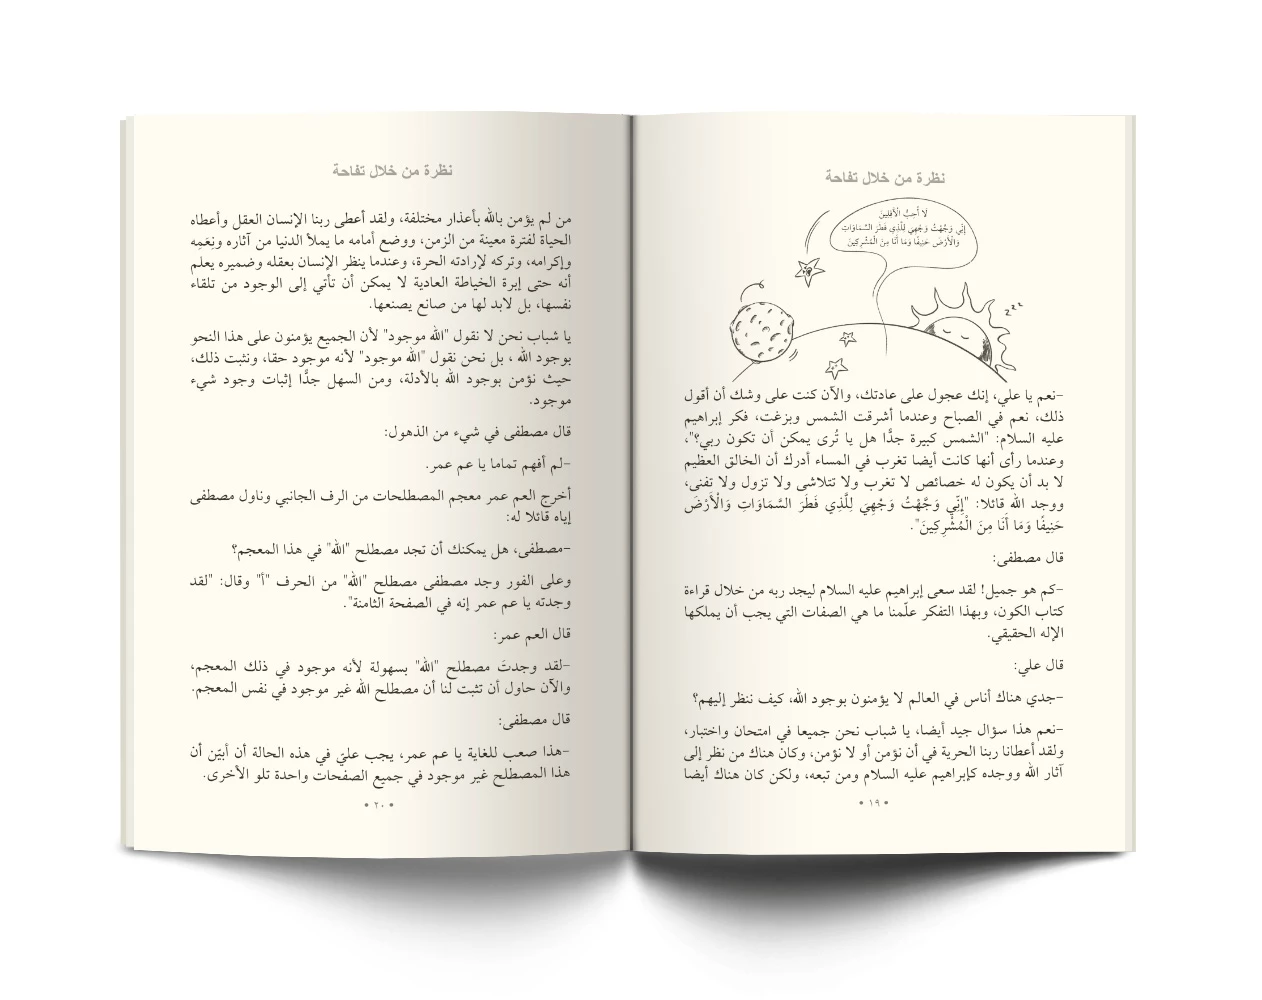 نظرة من خلال تفاحة
لَا أُحِبُّ الْآفِلِينَ
إِنِّي وَجَّهْتُ وَجْهِيَ لِلَّذِي فَطَرَ السَّمَاوَاتِ
وَالْأَرْضَ حَنِيفًا وَمَا أَنَا مِنَ الْمُشْرِكِينَ
zzz
-نعم يا علي، إنك عجول على عادتك، والآن كنت على وشك أن أقول
ذلك، نعم في الصباح وعندما أشرقت الشمس وبزغت، فكر إبراهيم
عليه السلام: "الشمس كبيرة جدًّا هل يا تُرى يمكن أن تكون ربي؟"،
وعندما رأى أنها كانت أيضا تغرب في المساء أدرك أن الخالق العظيم
لا بد أن يكون له خصائص لا تغرب ولا تتلاشى ولا تزول ولا تفنى،
ووجد الله قائلا: "إِنِّي وَجَّهْتُ وَجْهِيَ لِلَّذِي فَطَرَ السَّمَاوَاتِ وَالْأَرْضَ
حَنِيفًا وَمَا أَنَا مِنَ الْمُشْرِكِينَ".
قال مصطفى:
-كم هو جميل! لقد سعى إبراهيم عليه السلام ليجد ربه من خلال قراءة
كتاب الكون، وبهذا التفكر علّمنا ما هي الصفات التي يجب أن يملكها
الإله الحقيقي.
قال علي:
-جدي هناك أناس في العالم لا يؤمنون بوجود الله، كيف ننظر إليهم؟
-نعم هذا سؤال جيد أيضا، يا شباب نحن جميعا في امتحان واختبار،
ولقد أعطانا ربنا الحرية في أن نؤمن أو لا نؤمن، وكان هناك من نظر إلى
آثار الله ووجده كإبراهيم عليه السلام ومن تبعه، ولكن كان هناك أيضا
• ١٩ •
نظرة من خلال تفاحة
من لم يؤمن بالله بأعذار مختلفة، ولقد أعطى ربنا الإنسان العقل وأعطاه
الحياة لفترة معينة من الزمن، ووضع أمامه ما يملأ الدنيا من آثاره ونِعَمِه
وإكرامه، وتركه لإرادته الحرة، وعندما ينظر الإنسان بعقله وضميره يعلم
أنه حتى إبرة الخياطة العادية لا يمكن أن تأتي إلى الوجود من تلقاء
نفسها، بل لابد لها من صانع يصنعها.
يا شباب نحن لا نقول "الله موجود" لأن الجميع يؤمنون على هذا النحو
بوجود الله ، بل نحن نقول "الله موجود" لأنه موجود حقا، ونثبت ذلك،
حيث نؤمن بوجود الله بالأدلة، ومن السهل جدًّا إثبات وجود شيء
موجود.
قال مصطفى في شيء من الذهول:
-لم أفهم تماما يا عم عمر.
أخرج العم عمر معجم المصطلحات من الرف الجانبي وناول مصطفى
إياه قائلا له:
-مصطفى، هل يمكنك أن تجد مصطلح "الله" في هذا المعجم؟
وعلى الفور وجد مصطفى مصطلح "الله" من الحرف "أ" وقال: "لقد
وجدته يا عم عمر إنه في الصفحة الثامنة".
قال العم عمر:
-لقد وجدتَ مصطلح "الله" بسهولة لأنه موجود في ذلك المعجم،
والآن حاول أن تثبت لنا أن مصطلح الله غير موجود في نفس المعجم.
قال مصطفى:
-هذا صعب للغاية يا عم عمر، يجب عليّ في هذه الحالة أن أبيّن أن
هذا المصطلح غير موجود في جميع الصفحات واحدة تلو الأخرى.
• ٢٠ •